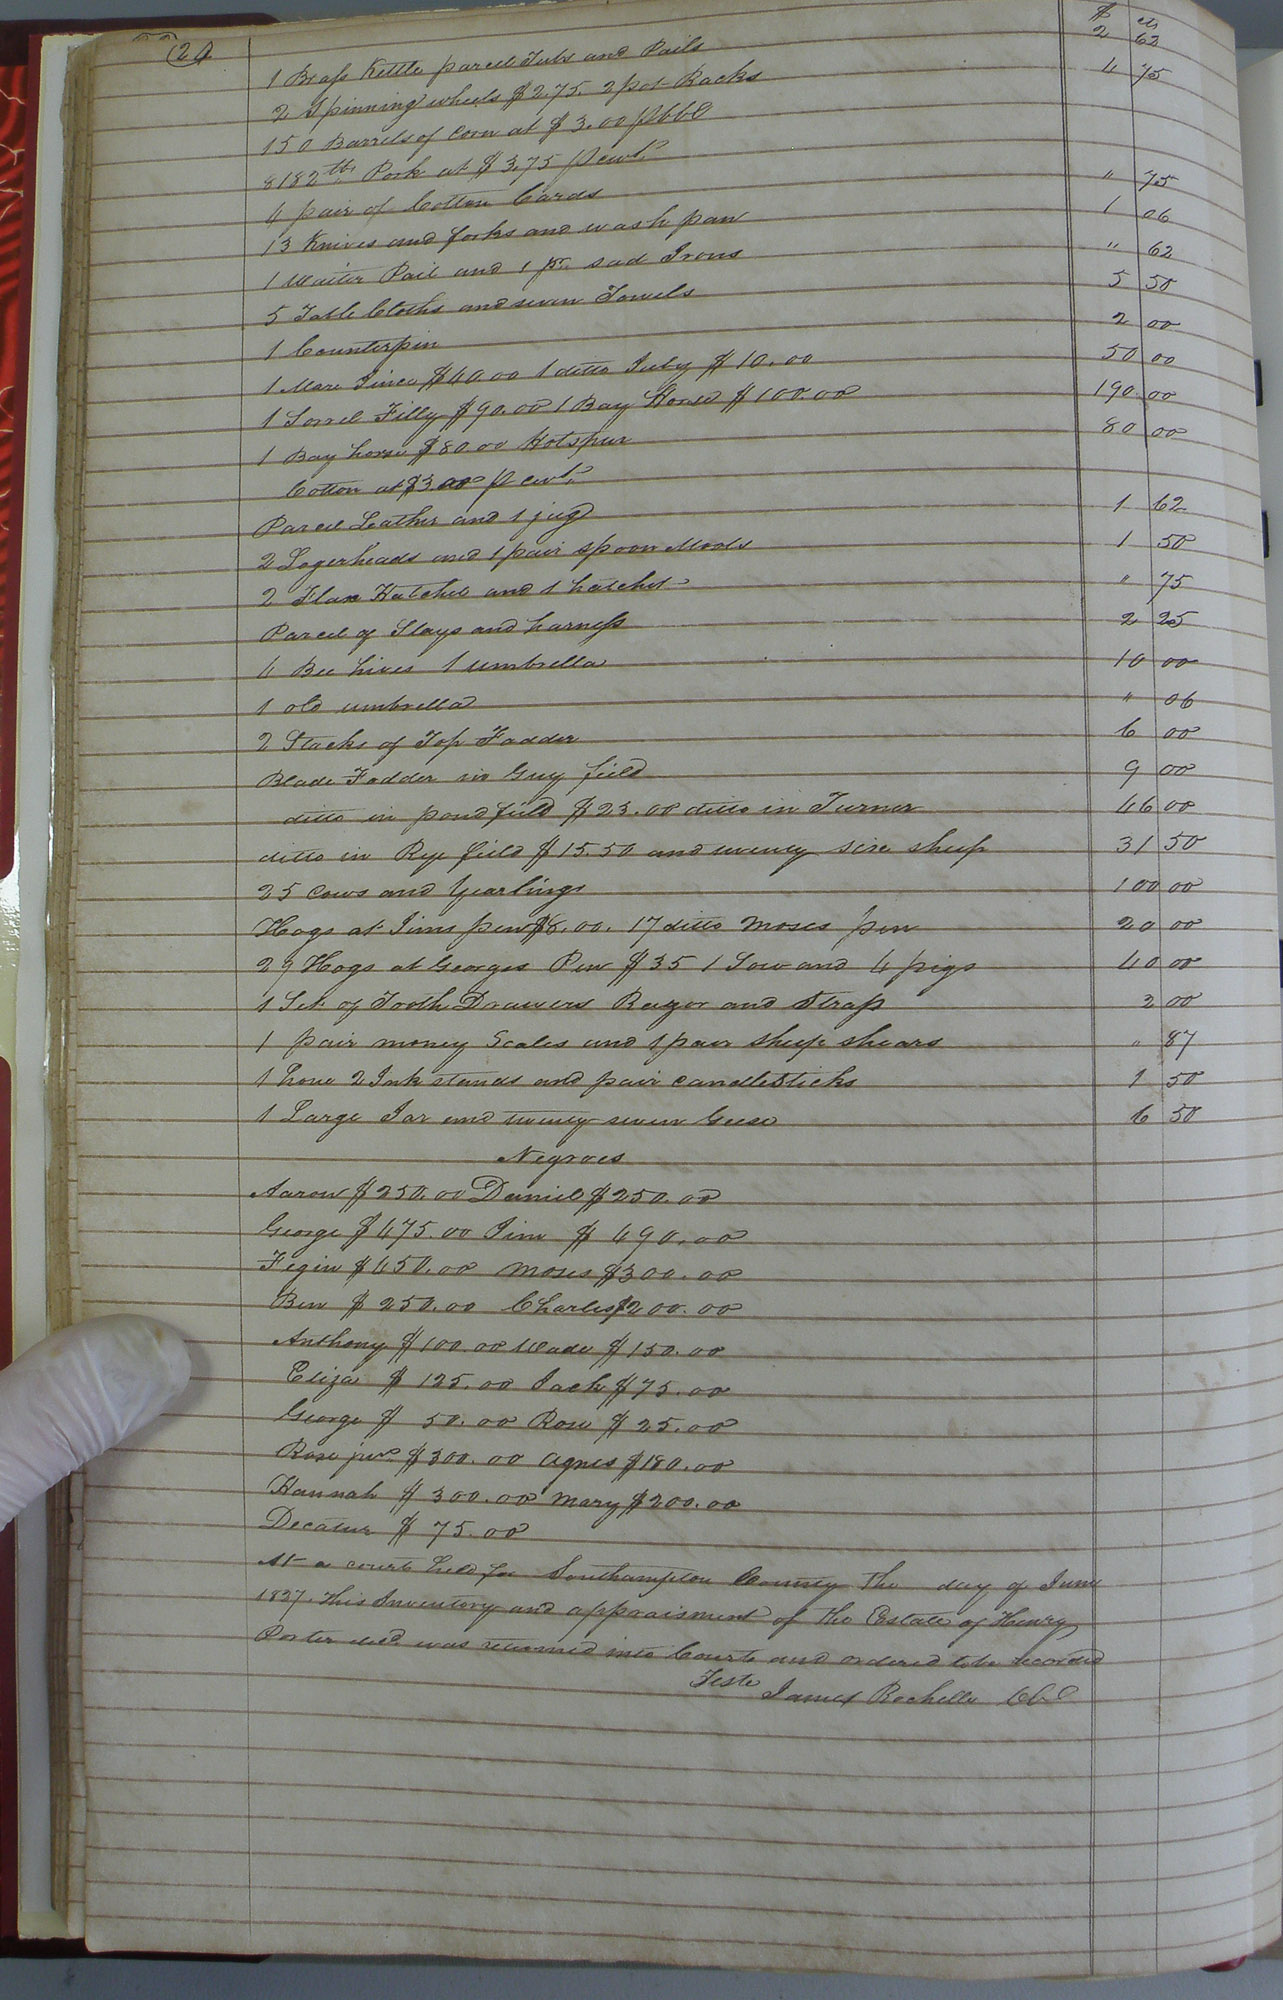 24
$ cts
1 Brass Kettle parcel Tubs and Pails 2 62
2 Spinning wheels $2.75. 2 pot Racks 4 75
150 Barrels of Corn at $3.00 p bbl
8182 lbs Pork at $3.75 p cwt.
4 pair of Cotton Cards " 75
13 Knives and forks and wash pan 1 06
1 Waiter Pail and 1 pr. sad Irons " 62
5 Table Cloths and seven Towels 5 50
1 Counterpin 2 00
1 Mare $40.00 1 ditto July $10.00 50 00
1 Sorrel Filly $90.00 1 Bay Horse $100.00 190 00
1 Bay horse $80.00 Hotspur 80 00
Cotton at $3.00 p cwt.
Parcel Leather and 1 jug 1 62
2 Logerheads and 1 pair spoon Molds 1 50
2 Flax Hatchels and 1 hatchet " 75
Parcel of Slays and harness 2 25
4 Bee hives 1 umbrella 10 00
1 old umbrella " 06
2 Stacks of Top Fodder 6 00
Blade Fodder in Guy field 9 00
ditto in pond field $23.00 ditto in Turner 46 00
ditto in Rye field $15.50 and twenty six sheep 31 50
25 Cows and Yearlings 100 00
Hogs at Jims pen $8.00. 17 ditto Moses pen 20 00
29 Hogs at Georges Pen $35 1 Sow and 4 pigs 40 00
1 Set of Tooth Drawers Razor and Strap 2 00
1 pair money Scales and 1 pair sheep shears " 87
1 hone 2 Ink stands and pair candlesticks 1 50
1 Large Jar and twenty seven Geese 6 50
Negroes
Aaron $250.00 Daniel $250.00
George $475.00 Jim $490.00
$450.00 Moses $300.00
Ben $250.00 Charles $200.00
Anthony $100.00 Wade $150.00
Eliza $125.00 Jack $75.00
George $50.00 Rose $25.00
Rose junr $300.00 Agnes $180.00
Hannah $300.00 Mary $200.00
Decatur $75.00
At a court held for Southampton County the day of June
1837 This Inventory and appraisment of the Estate of Henry
Porter decd was returned into Court and ordered to be recorded
Teste
James Rochelle